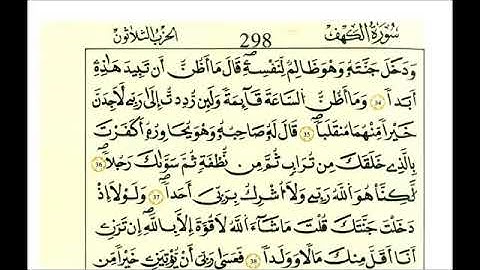 سُورَةُ الْكَهْفِ 298 الحِزْبُ الثَّلَاثُونَ
وَدَخَلَ جَنَّتَهُۥ وَهُوَ ظَالِمٌ لِّنَفْسِهِۦ قَالَ مَآ أَظُنُّ أَن تَبِيدَ هَٰذِهِۦٓ
أَبَداً 34 وَمَآ أَظُنُّ السَّاعَةَ قَآئِمَةً وَلَئِن رُّدِدتُّ إِلَىٰ رَبِّي لَأَجِدَنَّ
خَيْراً مِّنْهُمَا مُنقَلَباً 35 قَالَ لَهُۥ صَاحِبُهُۥ وَهُوَ يُحَاوِرُهُۥٓ أَكَفَرْتَ
بِالَّذِي خَلَقَكَ مِن تُرَابٍ ثُمَّ مِن نُّطْفَةٍ ثُمَّ سَوَّىٰكَ رَجُلاً 36
لَّٰكِنَّا هُوَ اللَّهُ رَبِّي وَلَآ أُشْرِكُ بِرَبِّيَ أَحَداً 37 وَلَوْلَآ إِذ
دَخَلْتَ جَنَّتَكَ قُلْتَ مَا شَآءَ اللَّهُ لَا قُوَّةَ إِلَّا بِاللَّهِ إِن تَرَنِۦ
أَنَآ أَقَلَّ مِنكَ مَالاً وَوَلَداً 38 فَعَسَىٰ رَبِّيَ أَن يُؤْتِيَنِۦ خَيْراً مِّن